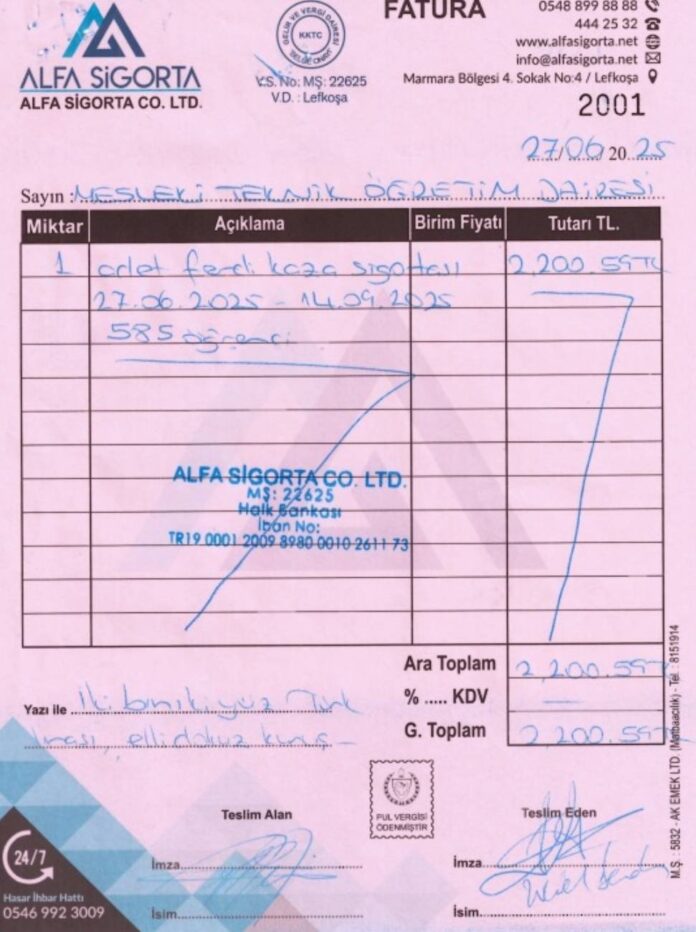 FATURA
0548 899 88 88
444 25 32
www.alfasigorta.net
info@alfasigorta.net
Marmara Bölgesi 4. Sokak No:4 / Lefkoşa
ALFA SİGORTA
ALFA SİGORTA CO. LTD.
GELİR VE VERGİ DAİRESİ
KKTC
V.S. No: MŞ: 22625
V.D. : Lefkoşa
2001
27/06/2025
Sayın : MESLEKİ TEKNİK ÖĞRETİM DAİRESİ
Miktar Açıklama Birim Fiyatı Tutarı TL.
1 adet ferdi kaza sigortası 2,200.59TL
27.06.2025 - 14.09.2025
585 öğrenci
ALFA SİGORTA CO. LTD.
MŞ: 22625
Halk Bankası
İban No:
TR19 0001 2009 8980 0010 2611 73
Ara Toplam 2,200.59TL
% ..... KDV —
G. Toplam 2,200.59TL
Yazı ile İki bin iki yüz Türk
lirası, elli dokuz kuruş
PUL VERGİSİ
ÖDENMİŞTİR
Teslim Alan
Teslim Eden
İmza
İmza
İsim
İsim
24/7
Hasar İhbar Hattı
0546 992 3009
M.Ş. : 5832 - AK EMEK LTD. (Matbaacılık) - Tel. : 8151914